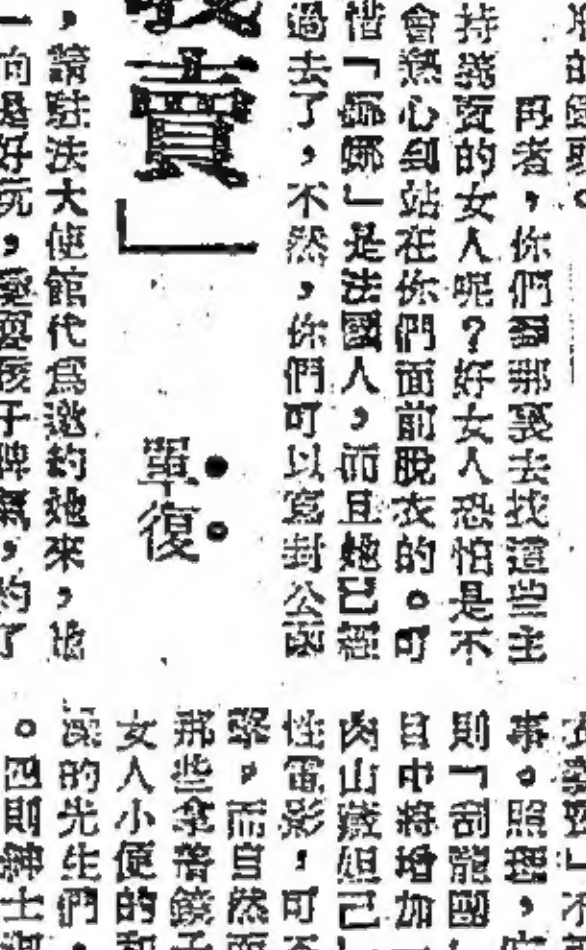 再者，你們到那裏去找這些主
持義賣的女人呢？好女人恐怕是不
會熱心到站在你們面前脫衣的。可
惜「娜娜」是法國人，而且她已經
過去了，不然，你們可以寫封公函
義賣」
單復
，請駐法大使館代為邀約她來，她
一向是好玩，愛耍孩子脾氣，約了
事。照理，
則「割龍國
目中將增加
肉山藏妲己
性電影，可
擊，而自然而
那些拿著鏡子
女人小便的和
的先生們，
。四則紳士